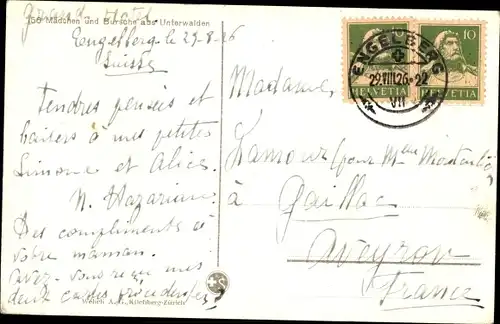 Grand Hotel
156 Mädchen und Bursche aus Unterwalden
Engelberg le 29-8-26
Suisse
Tendres pensées et
baisers à mes petites
Simone et Alice.
N. Nazarian
Des compliments à
votre maman.
avez-vous reçu mes
deux cartes précédentes?
Wehrli A.G., Kilchberg-Zürich
10
HELVETIA
HELVETIA
ENGELBERG
29.VIII.26.-22
VII
Madame
(pour Me
à Gaillac
Aveyron
France